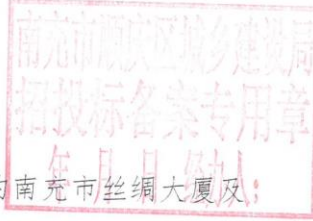 南充市顺庆区城乡建设局
招投标备案专用章
年 月 日 经办人:
的南充市丝绸大厦及